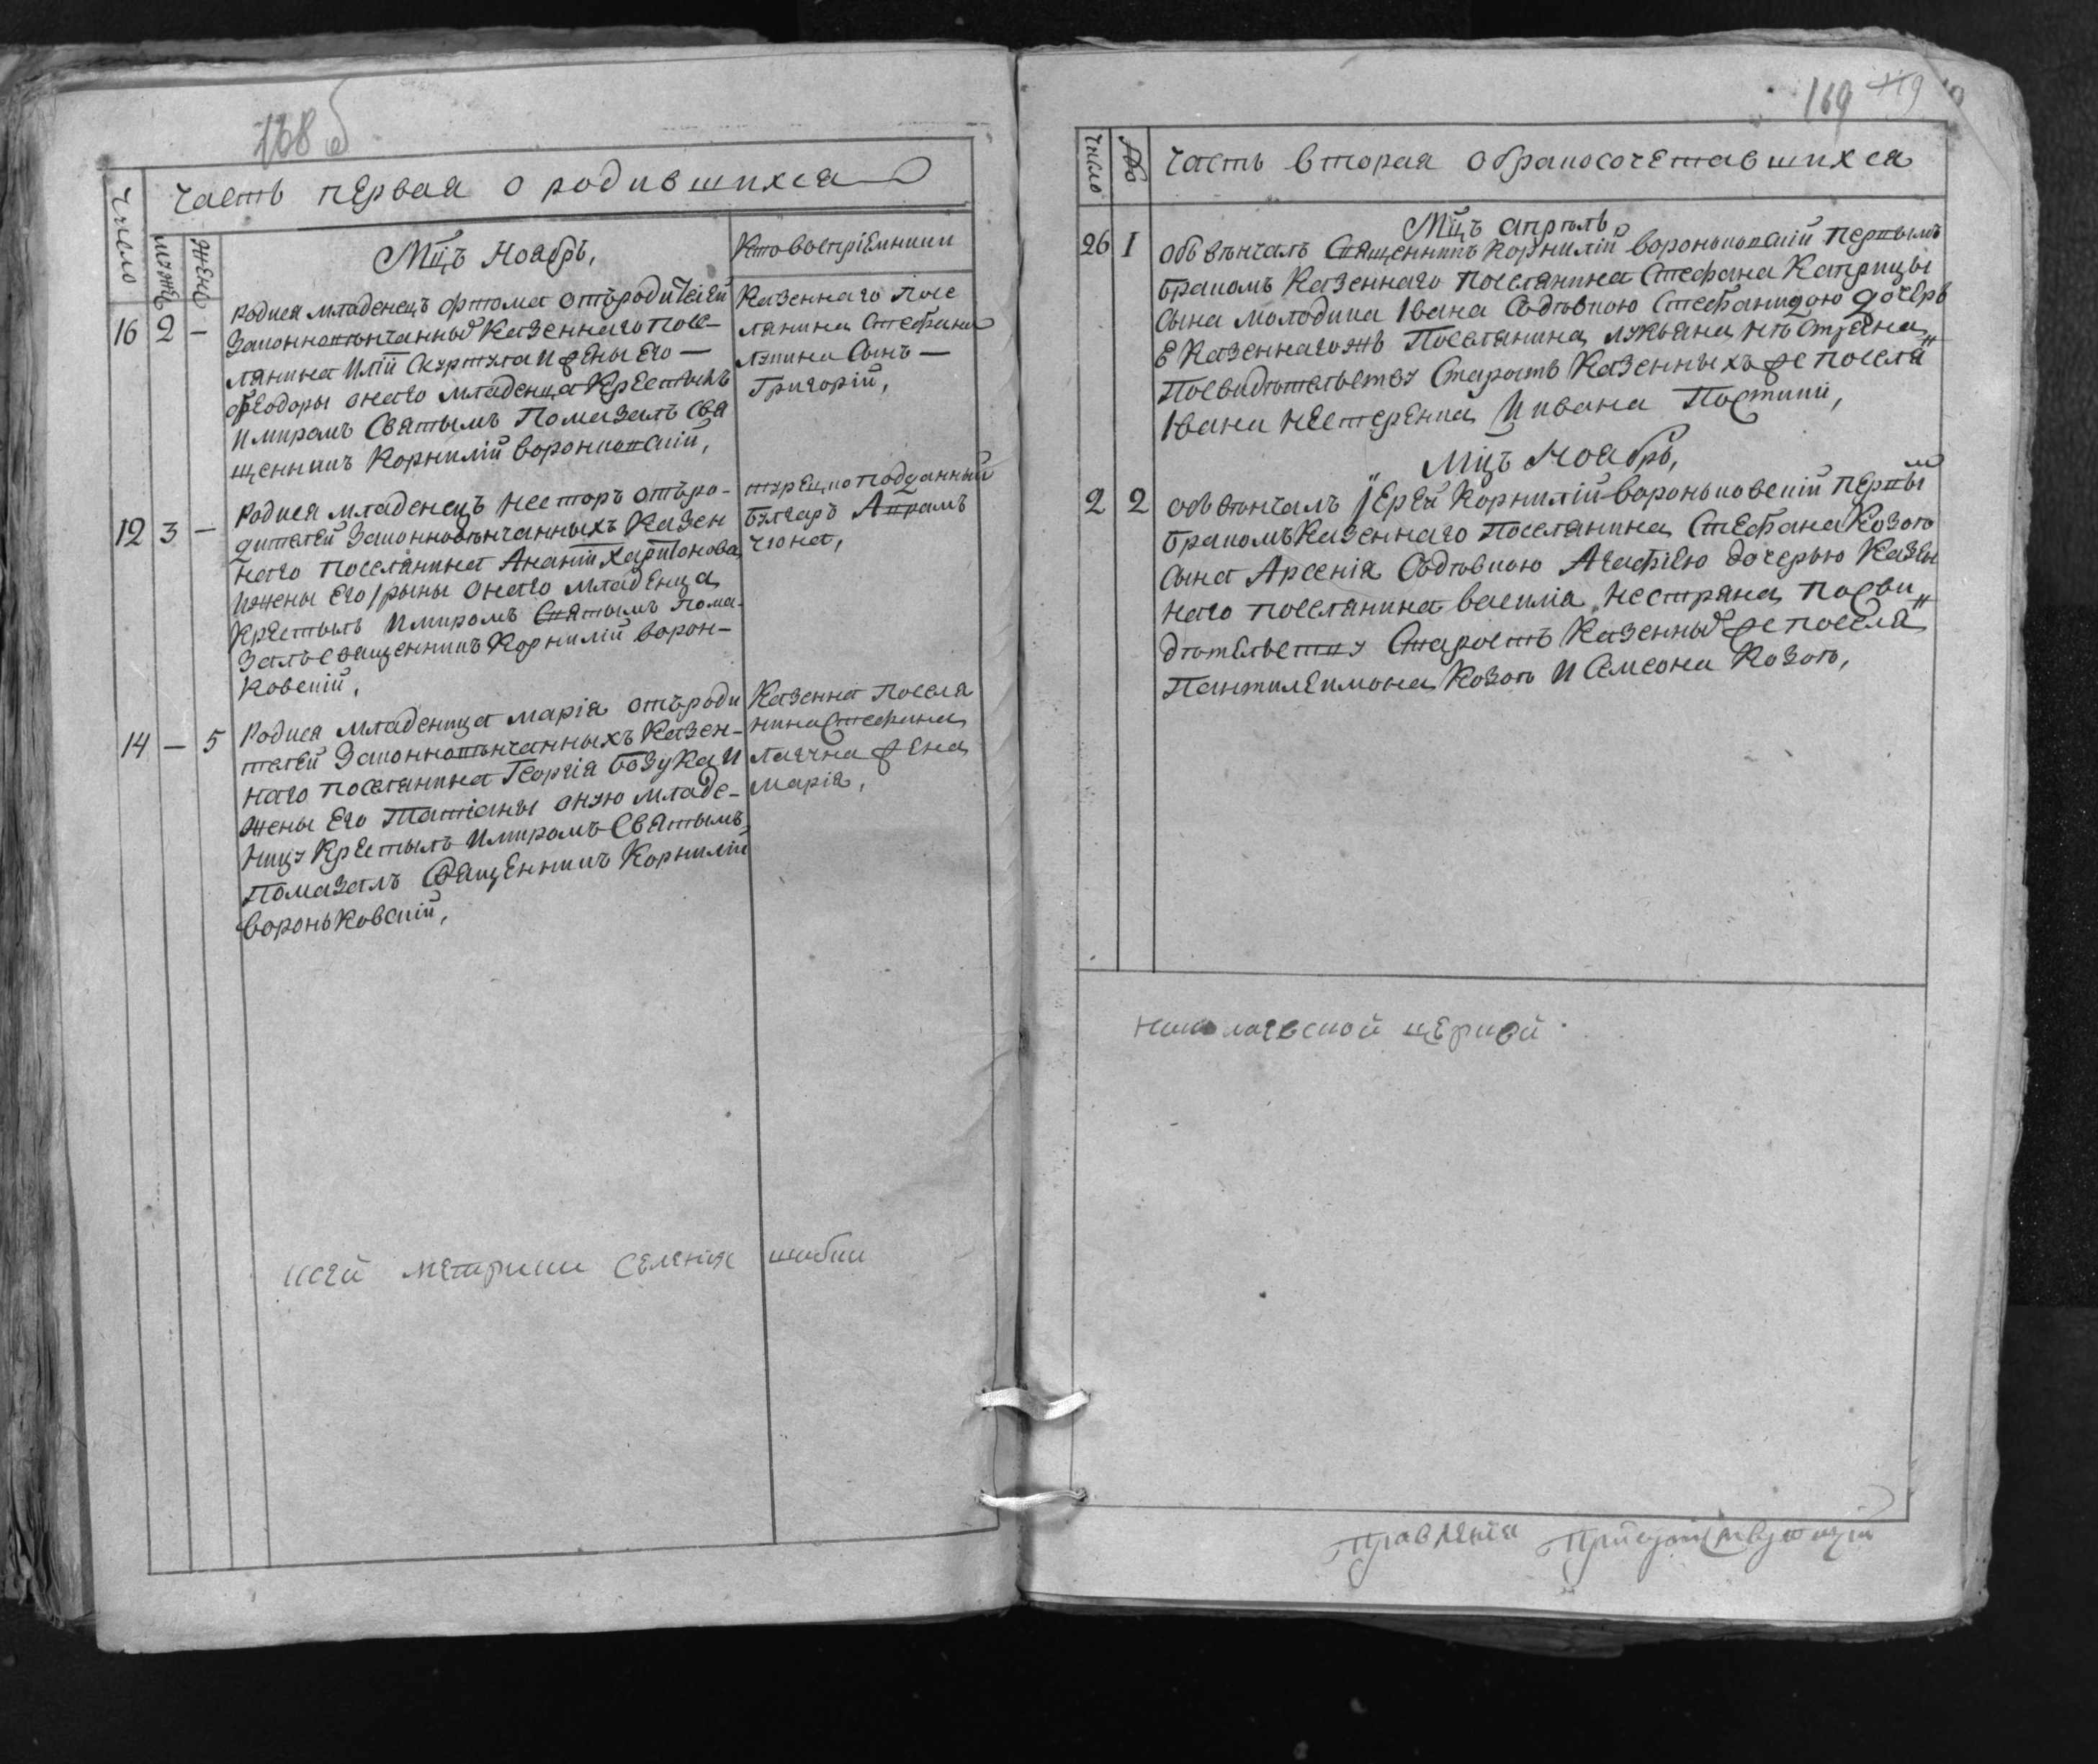 168 б
Часть первая о родившихся
Число
мужеска
женска
Мцъ Ноябрь,
Кто воспріемники
16 2 —
Родися младенецъ Фтома отъ родителей
законновѣнчанных казеннаго посе-
лянина Иліи Скуртула и жены его —
Феодоры онаго младенца крестилъ
и миромъ святымъ помазалъ свя
щенникъ Корнилій Воронковскій,
Казеннаго посе
лянина Стефана
Лупина сынъ —
Григорій,
12 3 —
Родися младенецъ Несторъ отъ ро-
дителей законновѣнчанныхъ казен
наго поселянина Ананіи Харитонова
и жены его Ірыны онаго младенца
крестилъ и миромъ святымъ пома-
залъ священникъ Корнилій Ворон-
ковскій,
турецко подданный
булгаръ Аврамъ
Чюна,
14 — 5
Родися младеница Марія отъ роди
телей законновѣнчанныхъ казен-
наго поселянина Георгія Бозука и
жены его Татіаны оную младе-
ницу крестилъ и миромъ святымъ
помазалъ священникъ Корнилій
Вороньковскій,
Казенна поселя
нина Стефана
жена
Марія,
сей метрики селенія шабки
169 119
число
Часть вторая о бракосочетавшихся
Мцъ апрѣль
26 1
Обвѣнчалъ священникъ Корнилій Вороньковскій первымъ
бракомъ казеннаго поселянина Стефана Катрицы
сына молодика Івана со дѣвкою Стефанидою дочерѣ
е казеннаго жъ поселянина Лукьяна Нѣстряна
по свидѣтельству старостѣ казенныхъ же поселя"
Івана Нестеренка и Ивана Постики,
Мцъ Ноябрь,
2 2
Обвѣнчалъ іерей Корнилій Вороньковскій первым
бракомъ казеннаго поселянина Стефана Козого
сына Арсенія со дѣвкою Агафіею дочерью казен
наго поселянина Василіа Нестряна по сви
дѣтельству старостѣ казенных же поселя"
Пантилеимона Козого и Самсона Козого,
николаевской церкви
правленія присутствующій